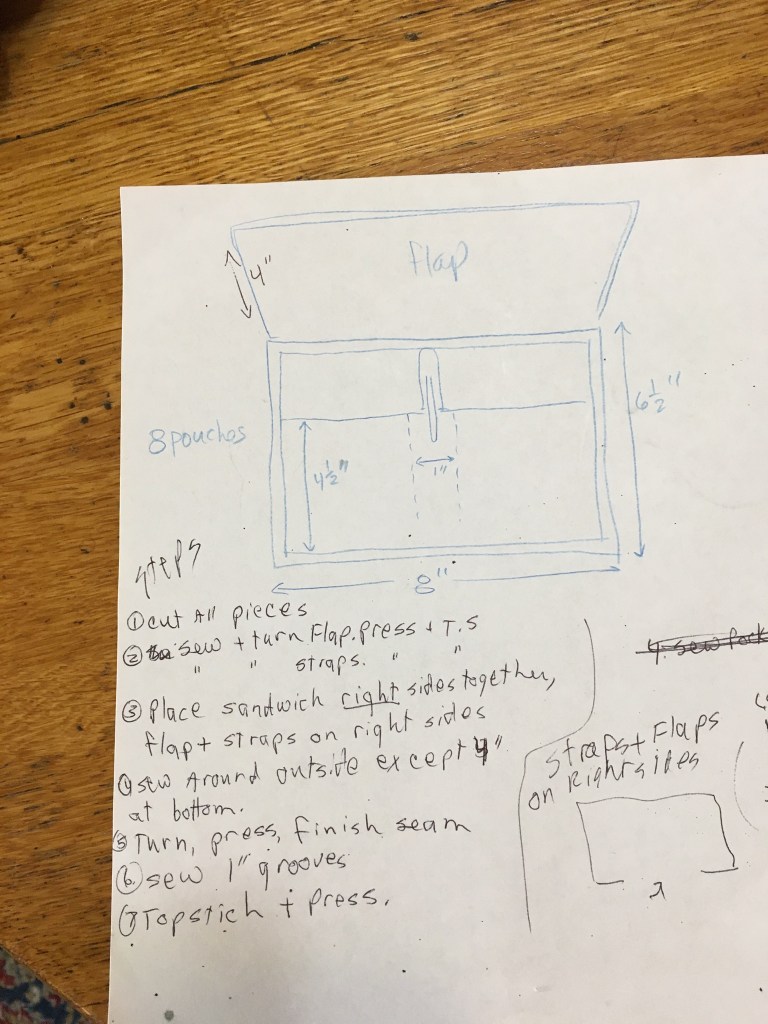 flap
4"
6½"
8 pouches
4½"
1"
8"
Steps
① cut All pieces
② sew + turn Flap. press + T.S
" " straps. " "
③ Place sandwich right sides together,
flap + straps on right sides
④ sew Around outside except 4"
at bottom.
⑤ Turn, press, finish seam
⑥ sew 1" grooves
⑦ Topstich + press.
4. sew
Straps + Flaps
on Right sides